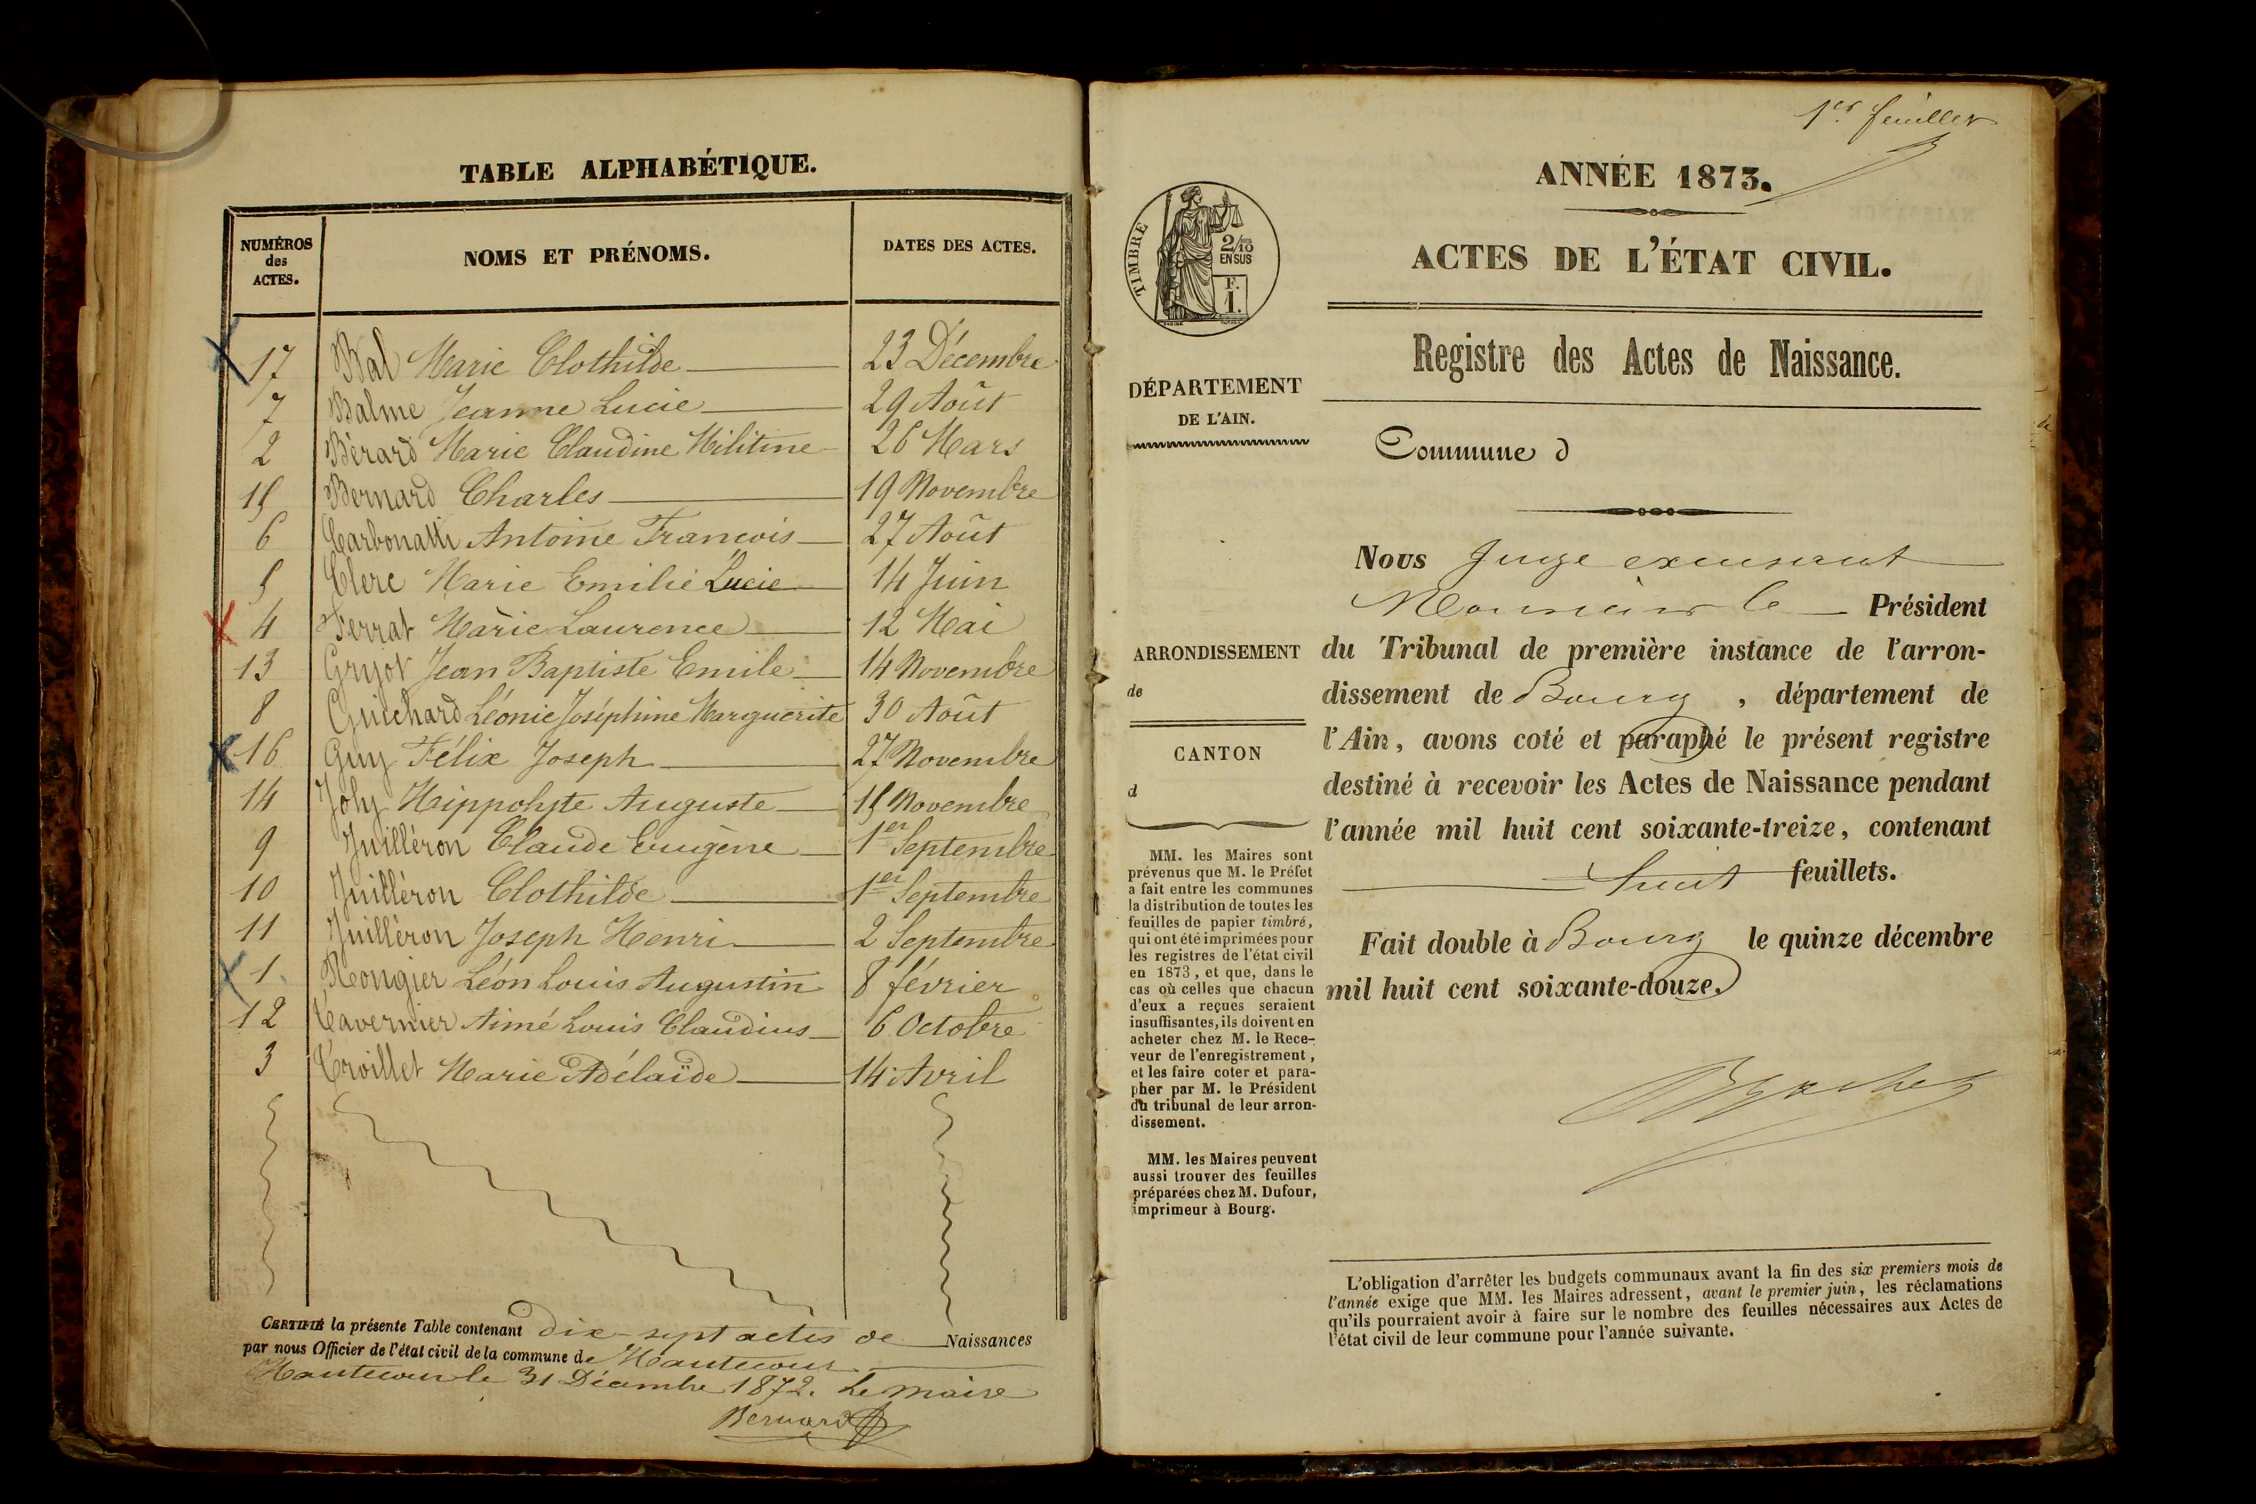 TABLE ALPHABÉTIQUE.
NUMÉROS des ACTES.
NOMS ET PRÉNOMS.
DATES DES ACTES.
17 Bal Marie Clothilde 23 Décembre
7 Balme Jeanne Lucie 29 Août
2 Bérard Marie Claudine Militine 26 Mars
15 Bernard Charles 19 Novembre
6 Carbonatti Antoine François 27 Août
5 Clerc Marie Emilie Lucie 14 Juin
4 Ferrat Marie Laurence 12 Mai
13 Gryot Jean Baptiste Emile 14 Novembre
8 Guichard Léonie Joséphine Marguerite 30 Août
16 Guy Félix Joseph 27 Novembre
14 Joly Hippolyte Auguste 15 Novembre
9 Juilléron Claude Eugène 1er Septembre
10 Juilléron Clothilde 1er Septembre
11 Juilléron Joseph Henri 2 Septembre
1 Rougier Léon Louis Augustin 8 février
12 Tavernier Aimé Louis Claudius 6 Octobre
3 Troillet Marie Adélaïde 14 Avril
CERTIFIÉ la présente Table contenant dix-sept actes de Naissances
par nous Officier de l'état civil de la commune de Hautecour
Hautecour le 31 Décembre 1872. Le maire
Bernard
1er feuillet
ANNÉE 1873.
ACTES DE L'ÉTAT CIVIL.
Registre des Actes de Naissance.
TIMBRE
2/10 EN SUS
F. 1.
DÉPARTEMENT
DE L'AIN.
Commune d
Nous Juge exerçant
Monsieur le Président
du Tribunal de première instance de l'arron-
dissement de Bourg , département de
l'Ain, avons coté et paraphé le présent registre
destiné à recevoir les Actes de Naissance pendant
l'année mil huit cent soixante-treize, contenant
huit feuillets.
Fait double à Bourg le quinze décembre
mil huit cent soixante-douze.
ARRONDISSEMENT
de
CANTON
d
MM. les Maires sont
prévenus que M. le Préfet
a fait entre les communes
la distribution de toutes les
feuilles de papier timbré,
qui ont été imprimées pour
les registres de l'état civil
en 1873, et que, dans le
cas où celles que chacun
d'eux a reçues seraient
insuffisantes, ils doivent en
acheter chez M. le Rece-
veur de l'enregistrement,
et les faire coter et para-
pher par M. le Président
du tribunal de leur arron-
dissement.
MM. les Maires peuvent
aussi trouver des feuilles
préparées chez M. Dufour,
imprimeur à Bourg.
L'obligation d'arrêter les budgets communaux avant la fin des six premiers mois de
l'année exige que MM. les Maires adressent, avant le premier juin, les réclamations
qu'ils pourraient avoir à faire sur le nombre des feuilles nécessaires aux Actes de
l'état civil de leur commune pour l'année suivante.